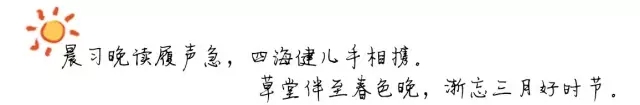 晨习晚读履声急，四海健儿手相携。
草堂伴至春色晚，渐忘三月好时节。